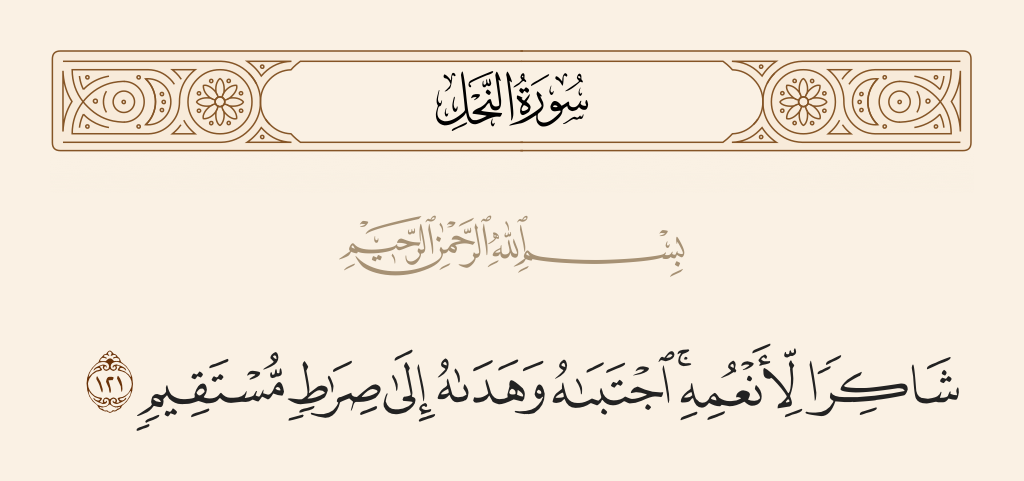 سُورَةُ النَّحْلِ
بِسْمِ ٱللَّهِ ٱلرَّحْمَٰنِ ٱلرَّحِيمِ
شَاكِرًا لِّأَنْعُمِهِ ۚ ٱجْتَبَىٰهُ وَهَدَىٰهُ إِلَىٰ صِرَٰطٍ مُّسْتَقِيمٍ ١٢١